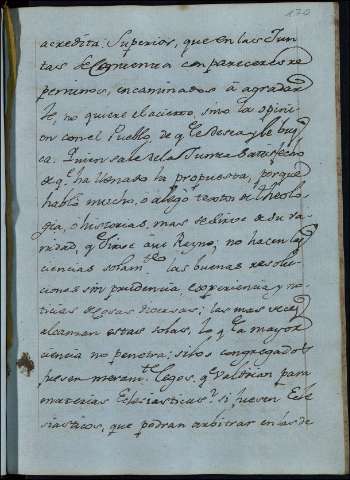 170
acredita; Superior, que en las Jun
tas de Conciencia con pareceres re
pentinos, encaminados à agradar
le, no quiere el acierto, sino la opini
on con el Pueblo, de q.e le desea, y le bus
ca. Quien sale de la Junta satisfecho
de q.e ha llenado la propuesta, porque
hablò mucho, ò alegò textos de theolo
gia, ò historias, mas se sirve de su va
nidad, q.e Dios, à un Reyno; no hacen las
ciencias solam.te las buenas resolu
ciones sin prudencia, experiencia y no
ticias de cosas diversas; las mas veces
alcanzan estas solas, lo q.e la mayor
ciencia no penetra; si los congregados
fuesen meram.te legos, q.e valdrian para
materias Eclesiasticas? si fuesen Ecle
siasticos, que podran arbitrar en las de